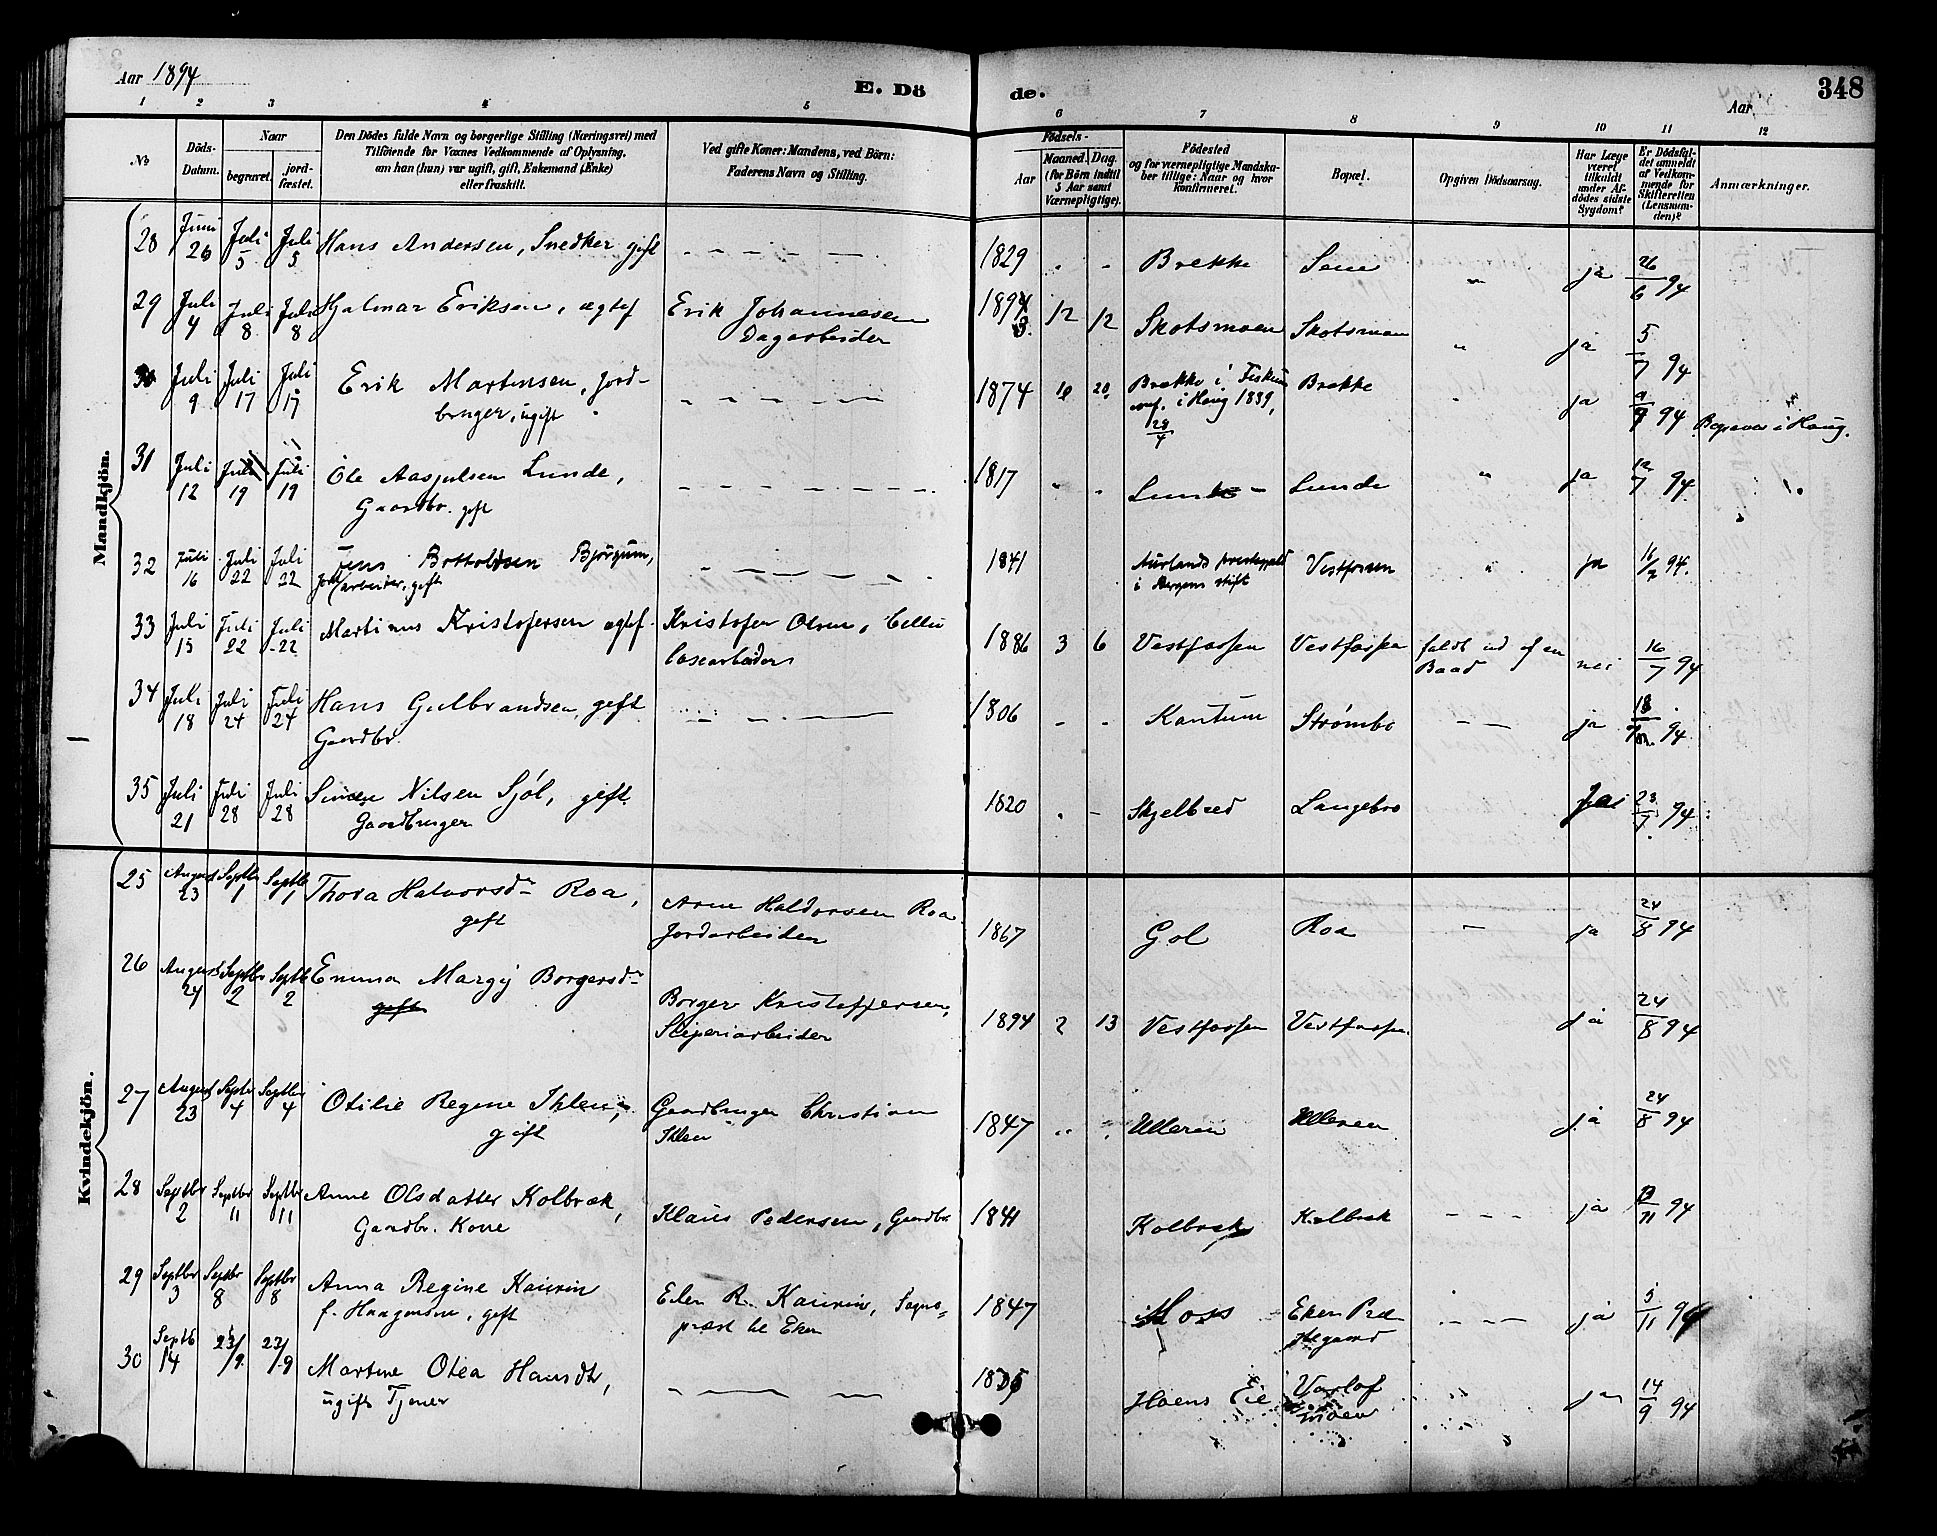 Aar 1894
E. Dö
de.
Aar
348
1 2 3 4 5 6 7 8 9 10 11 12
No
Döds-
Datum.
Naar
begravet.
jord-
fæstet.
Den Dödes fulde Navn og borgerlige Stilling (Næringsvei) med
Tilföiende for Voxnes Vedkommende af Oplysning,
om han (hun) var ugift, gift, Enkemand (Enke)
eller fraskilt.
Ved gifte Koner: Mandens, ved Börn:
Faderens Navn og Stilling.
Födsels-
Aar
Maaned. Dag.
(for Börn indtil
5 Aar samt
Værnepligtige).
Födested
og for værnepligtige Mandska-
ber tillige: Naar og hvor
konfirmeret.
Bopæl.
Opgiven Dödsaarsag.
Har Læge
været
tilkaldt
under Af-
dödes sidste
Sygdom?
Er Dödsfal-
det anmeldt
af Vedkom-
mende for
Skifteretten
(Lensman-
den)?
Anmærkninger.
Mandkjön.
28 Juni 26 Juli 5 Juli 5 Hans Andersen, Snedker gift 1829 Brekke Seme ja 26/6 94
29 Juli 4 Juli 8 Juli 8 Hjalmar Eriksen, ægtef Erik Johannesen 1893 12 12 Skotsmoen Skotsmoen ja 5/7 94
Dagarbeider
30 Juli 9 Juli 17 Juli 17 Erik Martinsen, jord- 1874 20 Brekke i Fiskum Brekke ja 9/7 94
bruger, ugift i Haug 1889, i Haug.
28/4
31 Juli 12 Juli 19 Juli 19 Ole Aasulsen Lunde, 1817 Lunde Lunde ja 12/7 94
Gaardbr. gift
32 Juli 16 Juli 22 Juli 22 Jens Bottolfsen Bjørgum, 1841 Aurlands prestegjeld Vestfossen ja 94.
Jordarbeider, gift i Bergens stift
33 Juli 15 Juli 22 Juli 22 Martinus Kristofersen ægtef. Kristofer Olsen, Cellu 1886 3 6 Vestfossen Vestfossen faldt ud af en nei 16/7 94
losearbeider Baad
34 Juli 18 Juli 24 Juli 24 Hans Gulbrandsen, gift 1806 Kantum Strømbo ja 18/7 94
Gaardbr.
35 Juli 21 Juli 28 Juli 28 Simen Nilsen Sjöl, gift 1820 Skjelbred Langebro Jai 23/7 94
Gaardbruger
Kvindekjön.
25 August 23 Septbr 1 Septbr 1 Thora Halvorsdr Roa, Arne Haldorsen Roa 1867 Gol Roa ja 24/8 94
gift Jordarbeider
26 August 24 Septbr 2 Septbr 2 Emma Margij Borgersdr Borger Kristoffersen, 1894 2 13 Vestfossen Vestfossen ja 24/8 94
gift Sliperiarbeider
27 August 23 Septbr 4 Septbr 4 Otilie Regine Ihlen, Gaardbruger Christian 1847 Ulleren Ulleren ja 24/8 94
gift Ihlen
28 Septbr 2 Septbr 11 Septbr 11 Anne Olsdatter Kolbræk, Klaus Pedersen, Gaardbr 1841 Kolbræk Kolbræk ja 94
Gaardbr. Kone
29 Septbr 3 Septbr 8 Septbr 8 Anna Regine Kaurin Eiler R. Kaurin, Sogne- 1847 Moss Eker Præ ja 5/11 94
f. Haagensen, gift præst til Eker stegaard
30 Septb 14 23/9 23/9 Martine Olea Hansdtr, Hoens Eie ja 14/9 94
ugift Tjener